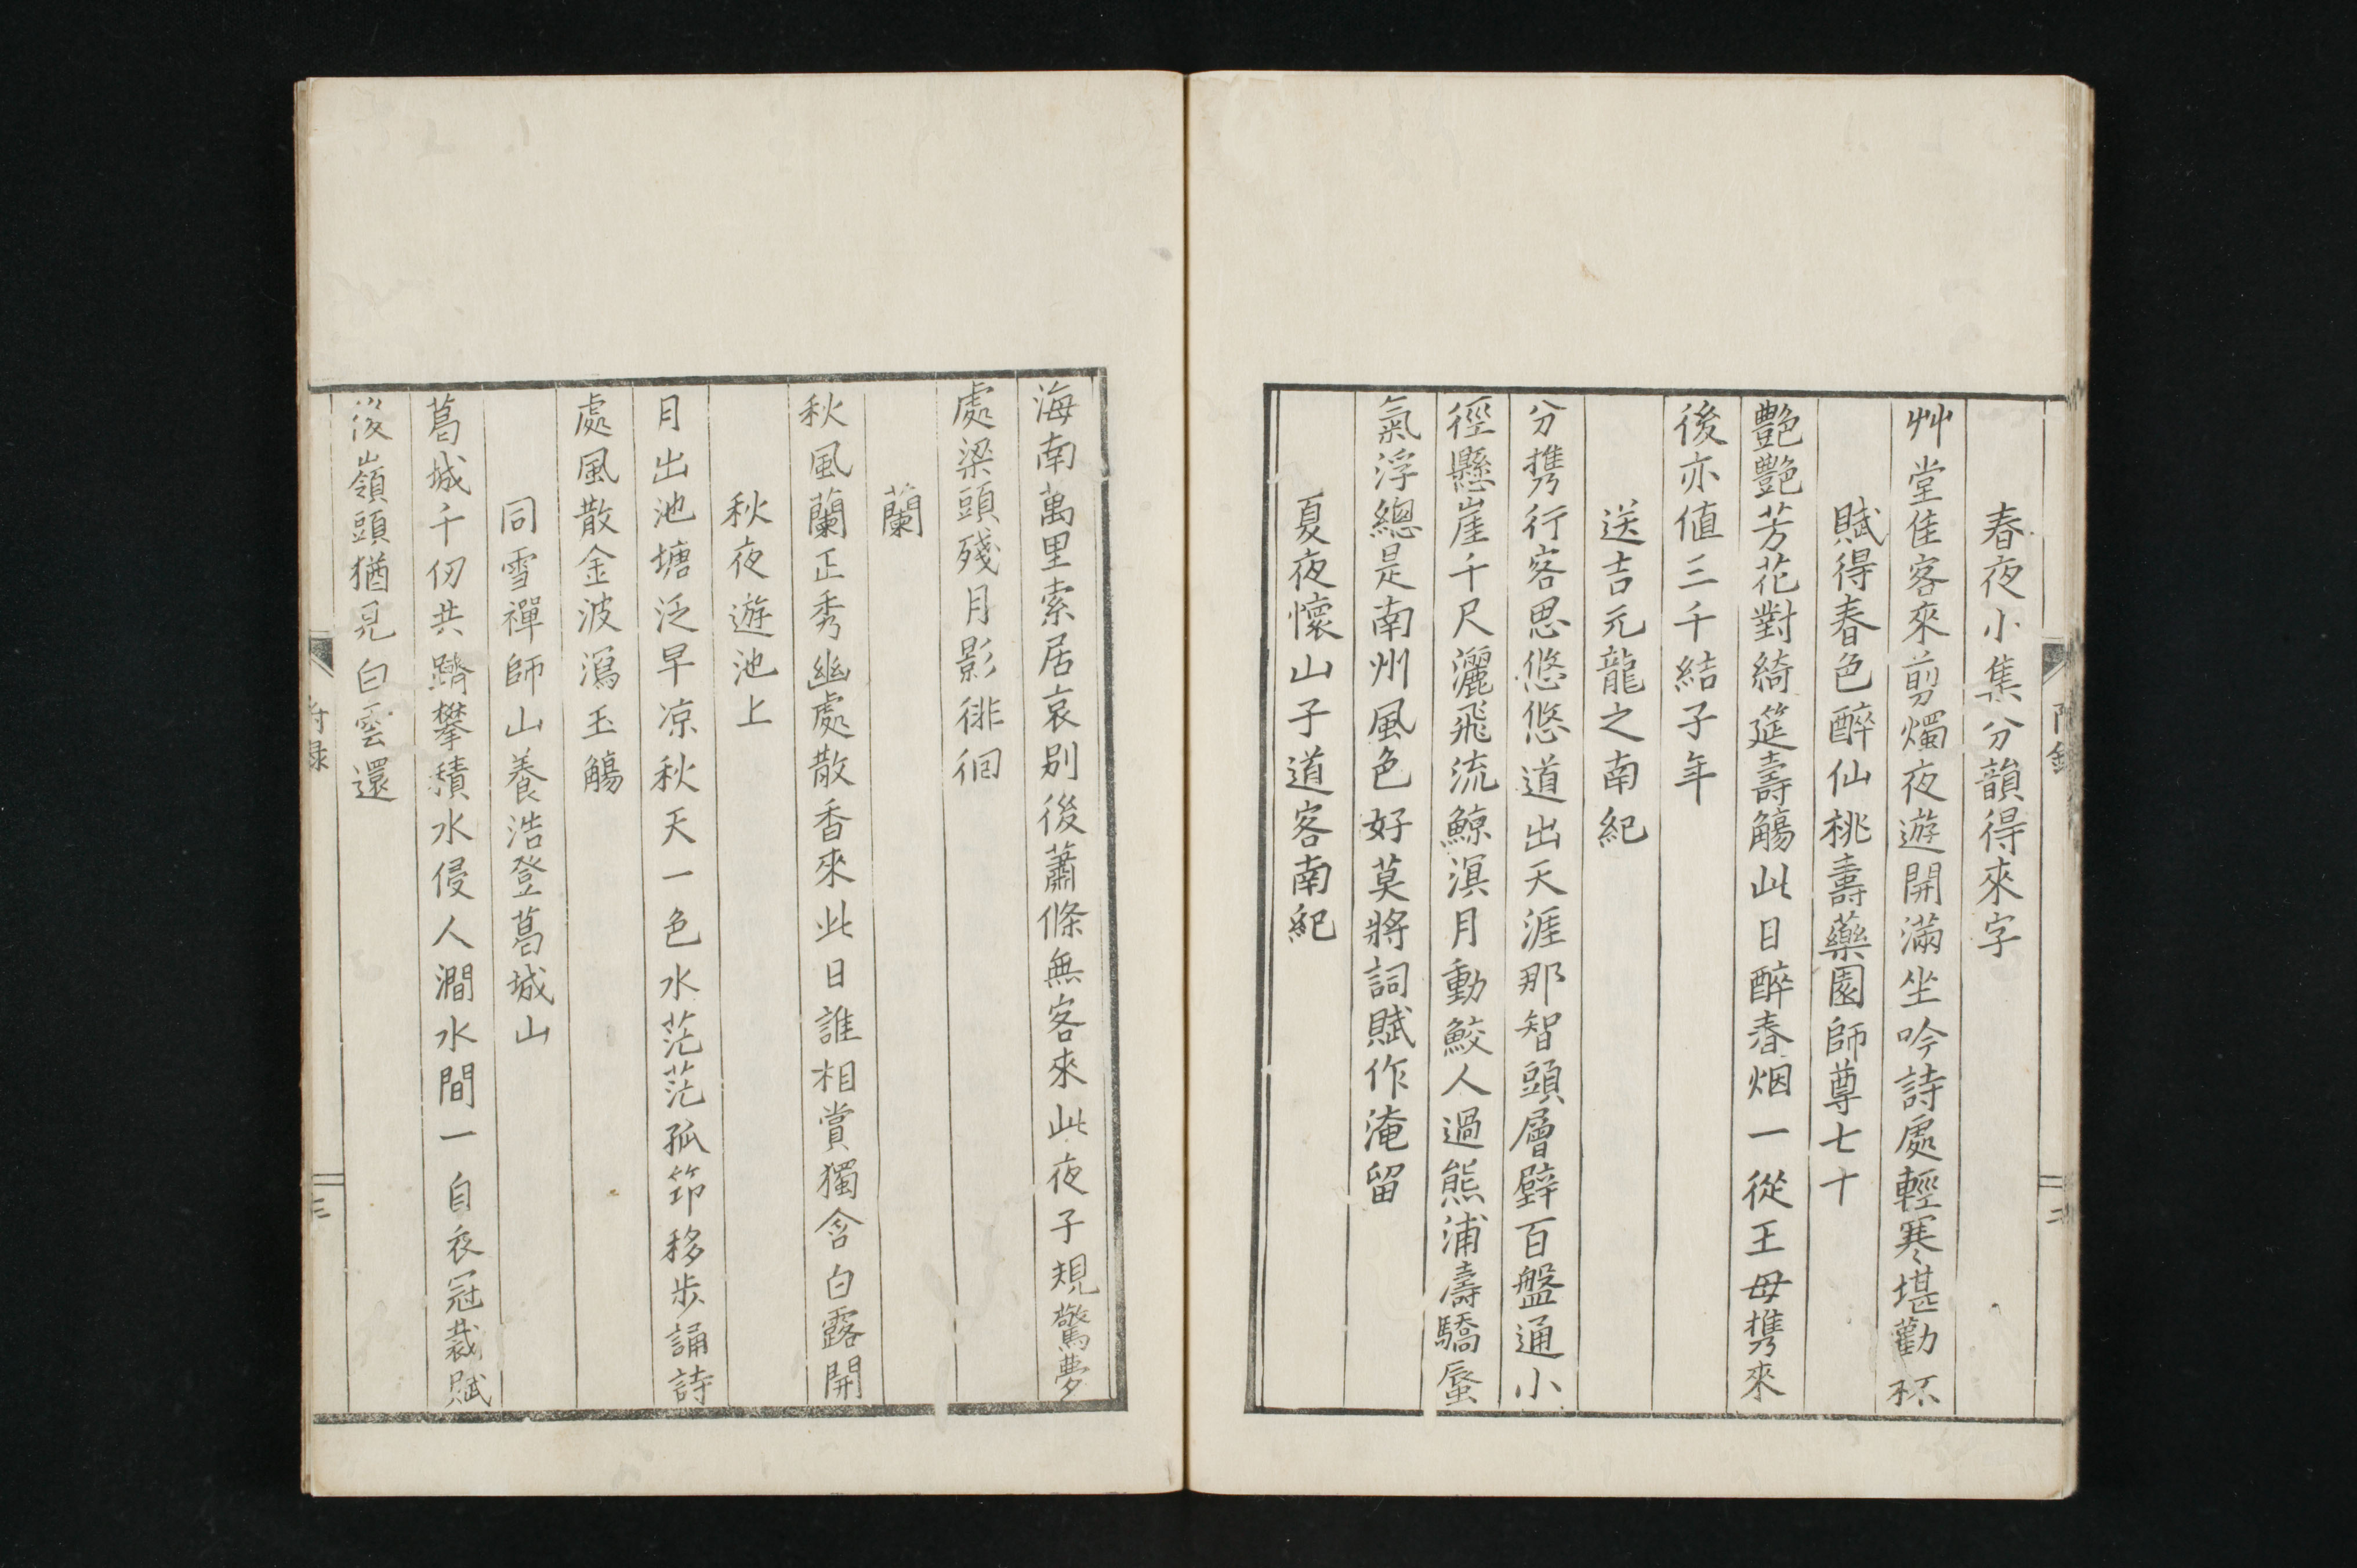 春夜小集分韻得來字
艸堂佳客來剪燭夜遊開滿坐吟詩處輕寒堪勸杯
賦得春色醉仙桃壽藥園師尊七十
艷艷芳花對綺筵壽觴此日醉春烟一從王母携來
後亦値三千結子年
送吉元龍之南紀
分携行客思悠悠道出天涯那智頭層壁百盤通小
徑懸崖千尺灑飛流鯨溟月動鮫人過熊浦濤驕蜃
氣浮總是南州風色好莫將詞賦作淹留
夏夜懷山子道客南紀
海南萬里索居哀別後蕭條無客來此夜子規驚夢
處梁頭殘月影徘徊
蘭
秋風蘭正秀幽處散香來此日誰相賞獨含白露開
秋夜遊池上
月出池塘泛早凉秋天一色水茫茫孤笻移步誦詩
處風散金波瀉玉觴
同雪禪師山養浩登葛城山
葛城千仞共躋攀積水侵人澗水間一自衣冠裁賦
後嶺頭猶見白雲還
附録
三